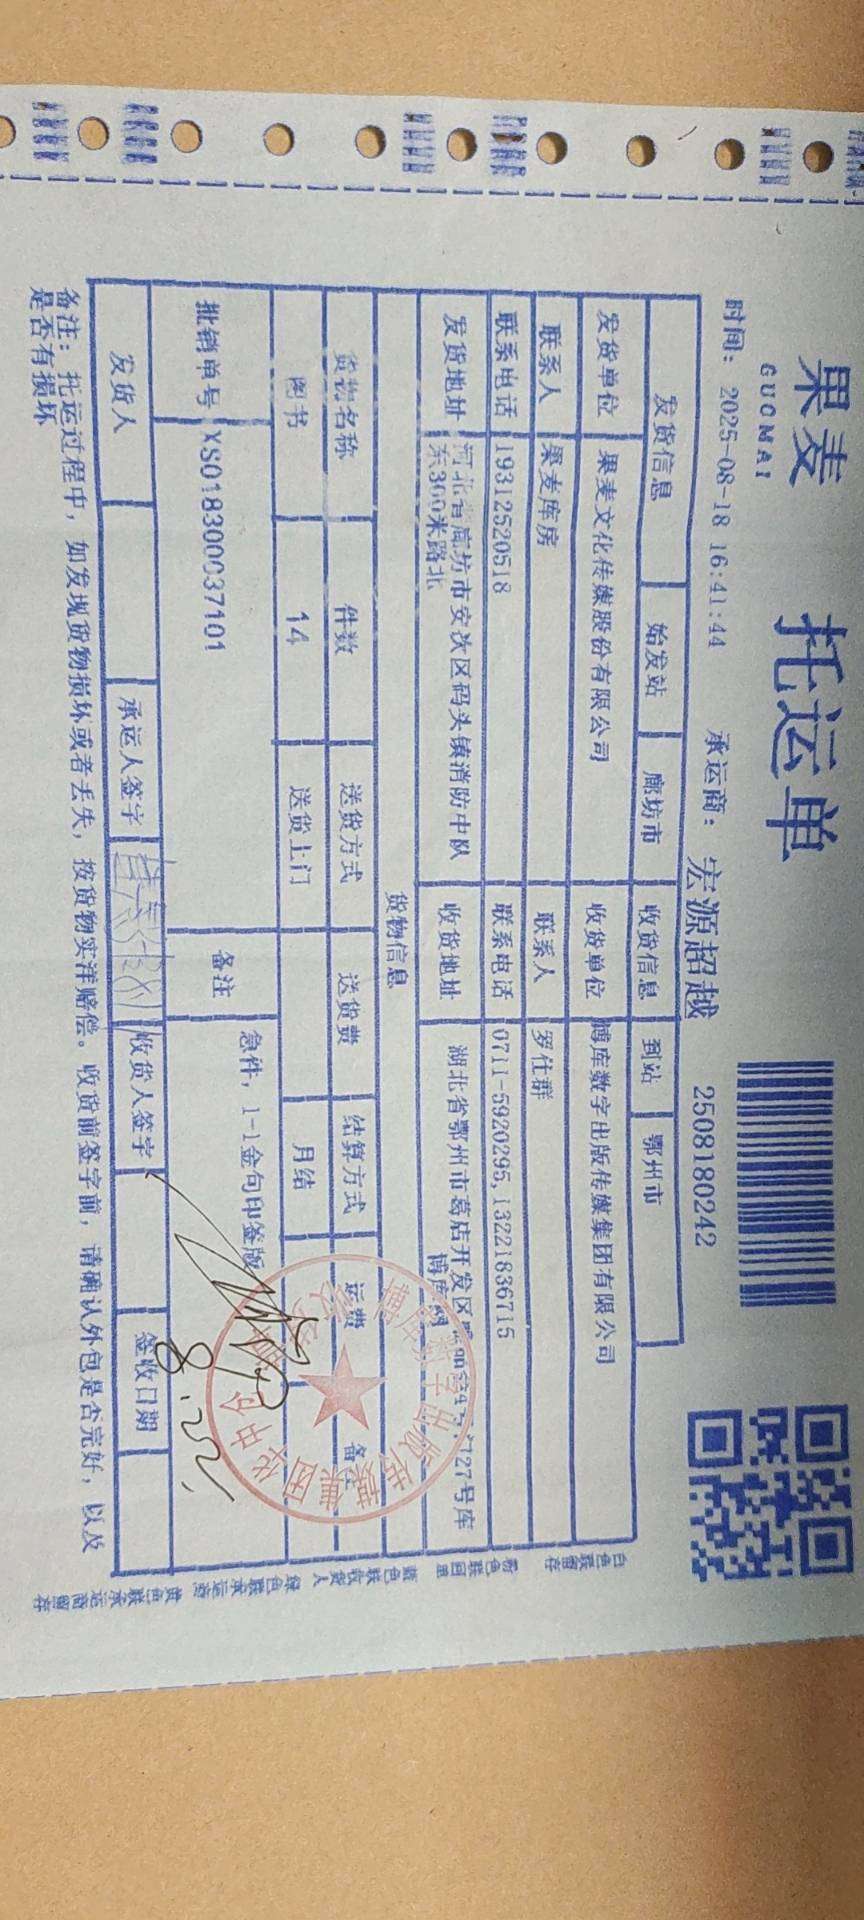 果麦
GUOMAI
托运单
时间: 2025-08-18 16:41:44
承运商: 宏源超越
2508180242
发货信息 始发站 廊坊市 收货信息 到站 鄂州市
发货单位 果麦文化传媒股份有限公司 收货单位 博库数字出版传媒集团有限公司
联系人 果麦库房 联系人 罗仕群
联系电话 19312520518 联系电话 0711-5920295,13221836715
发货地址 河北省廊坊市安次区码头镇消防中队
东300米路北
收货地址 湖北省鄂州市葛店开发区
727号库
货物信息
货物名称 件数 送货方式 送货费 结算方式 运费 备注
图书 14 送货上门 月结
批销单号 XS018300037101 备注 急件, 1-1金句印签版
发货人 承运人签字 收货人签字 签收日期
8.22
备注: 托运过程中, 如发现货物损坏或者丢失, 按货物实洋赔偿。收货前签字前, 请确认外包是否完好, 以及
是否有损坏
白色联留存
粉色联回里
蓝色联收货人
绿色联承运商
黄色联承运商留存